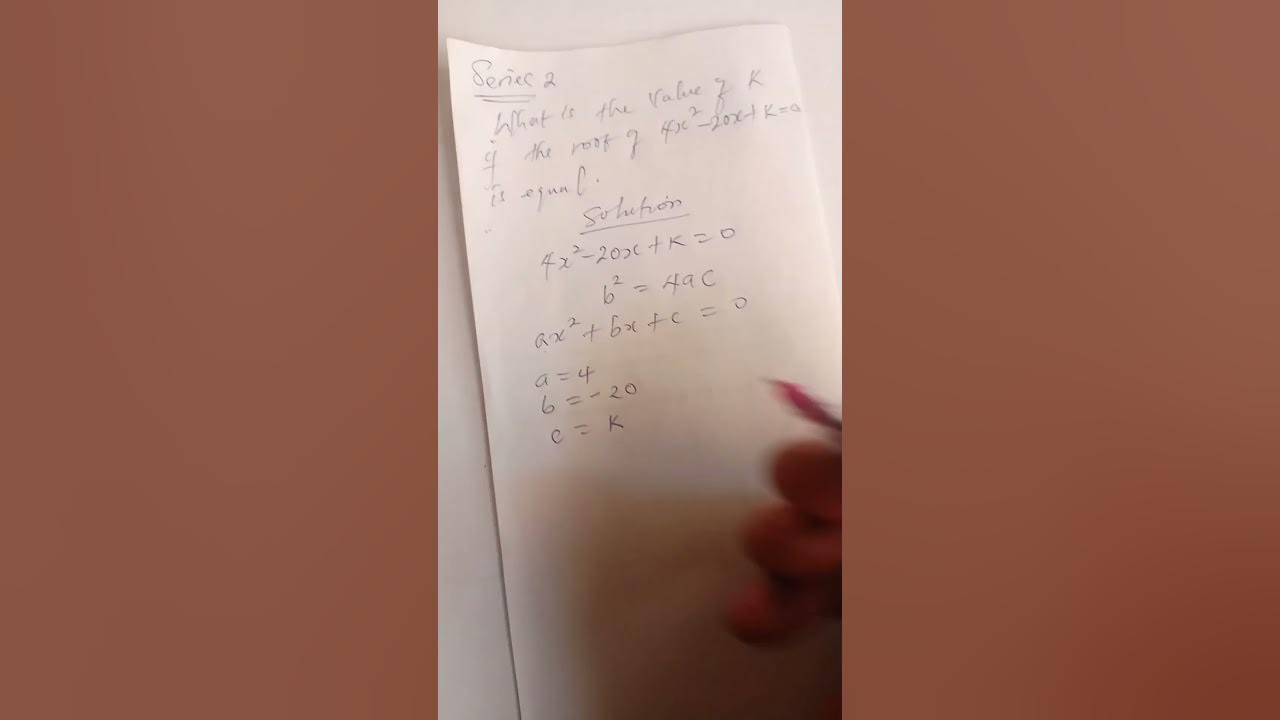 Series 2
What is the value of K
if the root of 4x² - 20x + K = 0
is equal.
Solution
4x² - 20x + K = 0
b² = 4ac
ax² + bx + c = 0
a = 4
b = -20
c = K